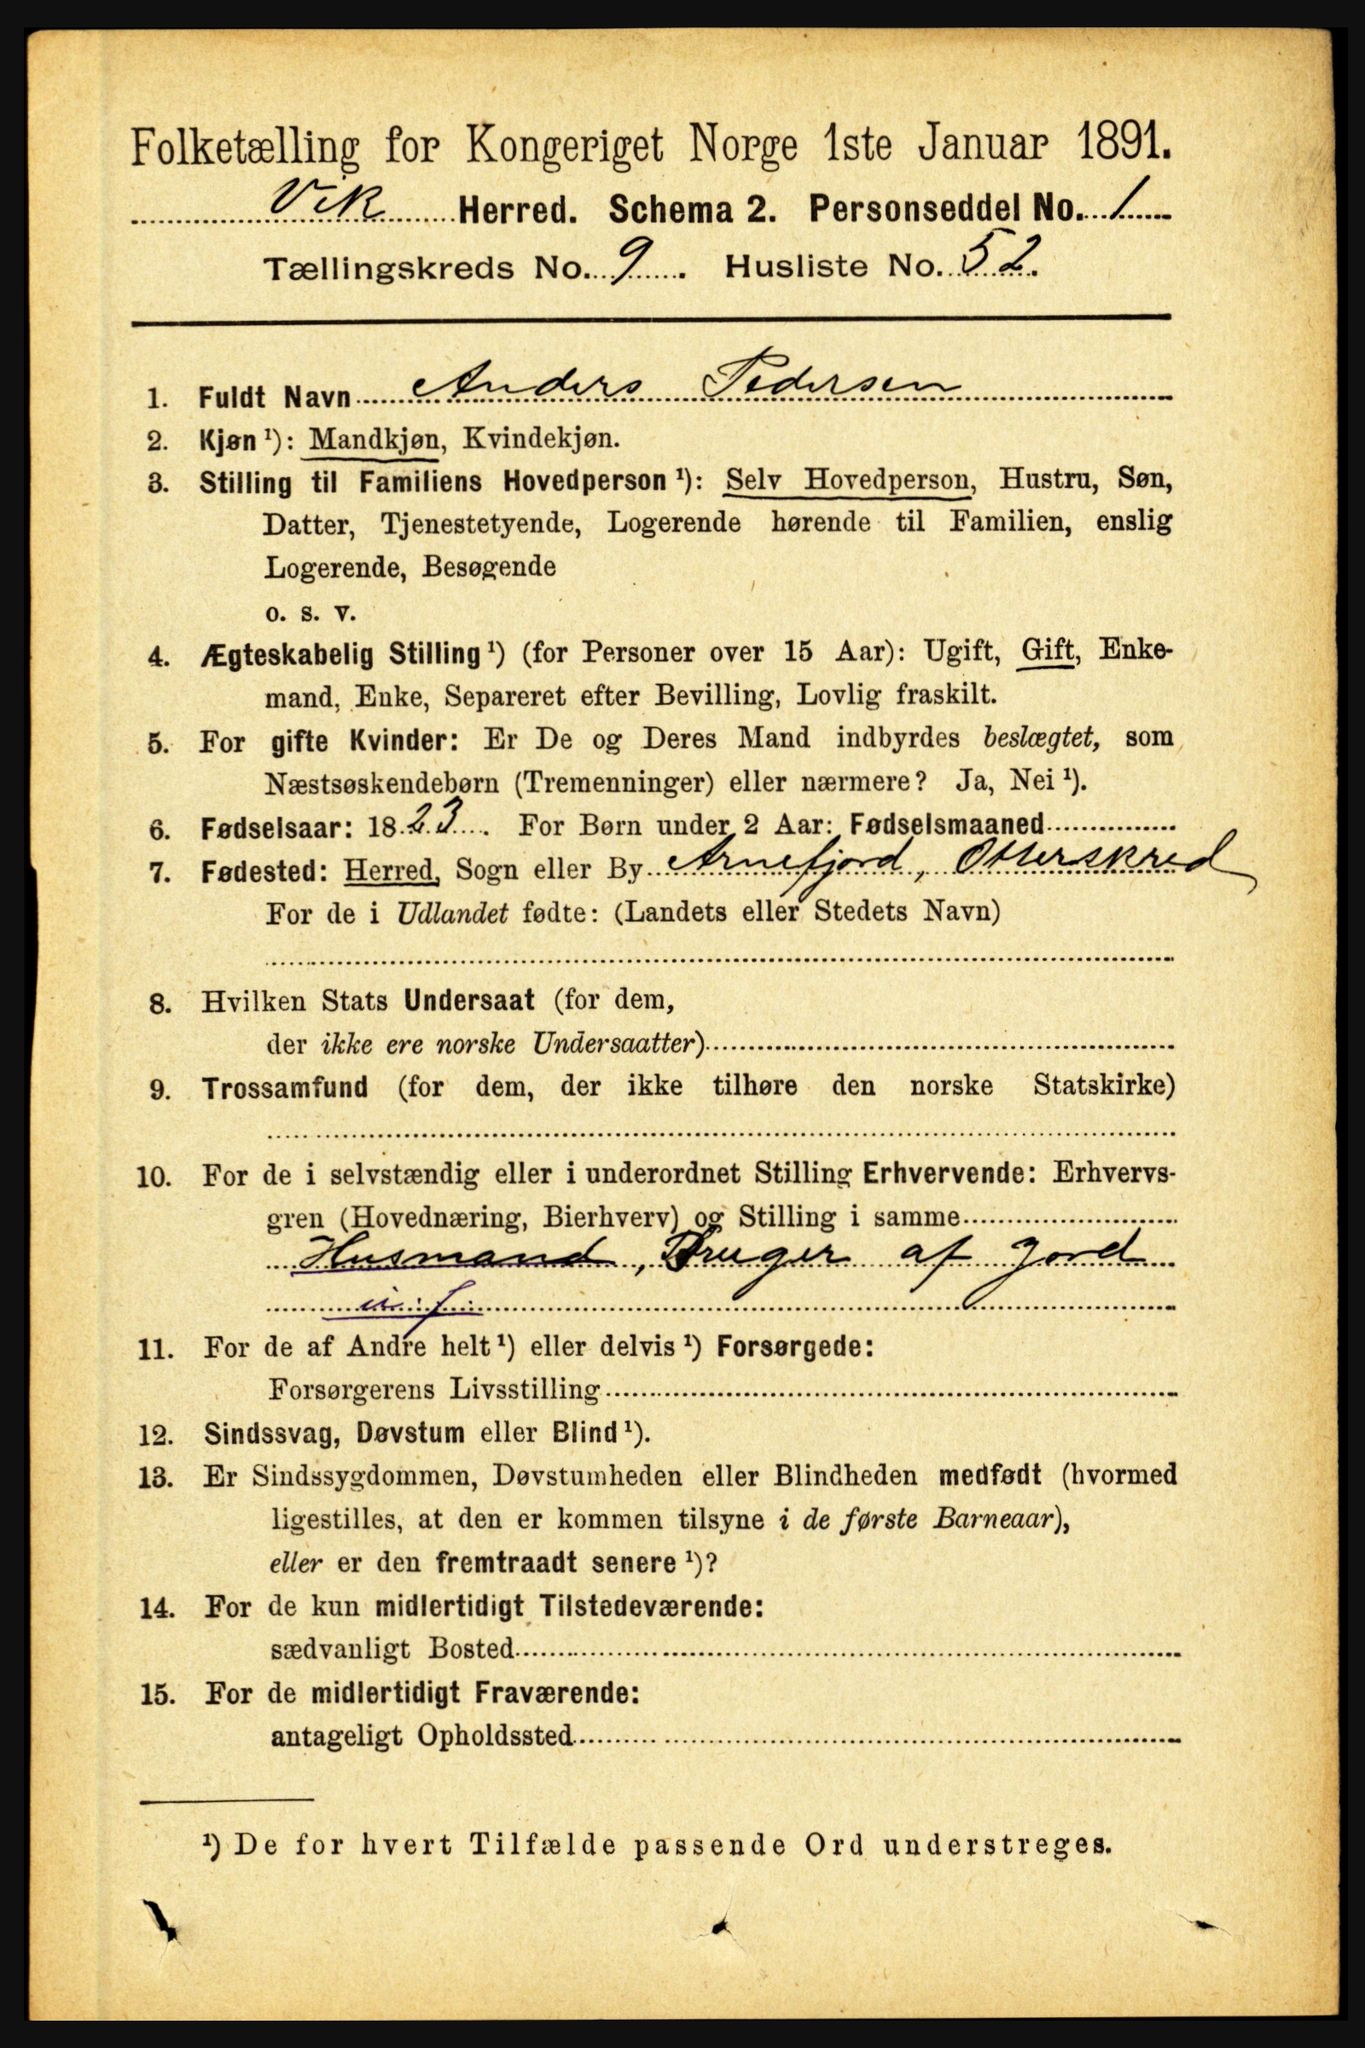 Folketælling for Kongeriget Norge 1ste Januar 1891.
Vik Herred. Schema 2. Personseddel No. 1
Tællingskreds No. 9. Husliste No. 52.
1. Fuldt Navn Anders Pedersen
2. Kjøn ¹): Mandkjøn, Kvindekjøn.
3. Stilling til Familiens Hovedperson ¹): Selv Hovedperson, Hustru, Søn,
Datter, Tjenestetyende, Logerende hørende til Familien, enslig
Logerende, Besøgende
o. s. v.
4. Ægteskabelig Stilling ¹) (for Personer over 15 Aar): Ugift, Gift, Enke-
mand, Enke, Separeret efter Bevilling, Lovlig fraskilt.
5. For gifte Kvinder: Er De og Deres Mand indbyrdes beslægtet, som
Næstsøskendebørn (Tremenninger) eller nærmere? Ja, Nei ¹).
6. Fødselsaar: 1823. For Børn under 2 Aar: Fødselsmaaned
7. Fødested: Herred, Sogn eller By Arnefjord, Otterskred
For de i Udlandet fødte: (Landets eller Stedets Navn)
8. Hvilken Stats Undersaat (for dem,
der ikke ere norske Undersaatter)
9. Trossamfund (for dem, der ikke tilhøre den norske Statskirke)
10. For de i selvstændig eller i underordnet Stilling Erhvervende: Erhvervs-
gren (Hovednæring, Bierhverv) og Stilling i samme
Husmand, Bruger af Jord
11. For de af Andre helt ¹) eller delvis ¹) Forsørgede:
Forsørgerens Livsstilling
12. Sindssvag, Døvstum eller Blind ¹).
13. Er Sindssygdommen, Døvstumheden eller Blindheden medfødt (hvormed
ligestilles, at den er kommen tilsyne i de første Barneaar),
eller er den fremtraadt senere ¹)?
14. For de kun midlertidigt Tilstedeværende:
sædvanligt Bosted
15. For de midlertidigt Fraværende:
antageligt Opholdssted
¹) De for hvert Tilfælde passende Ord understreges.